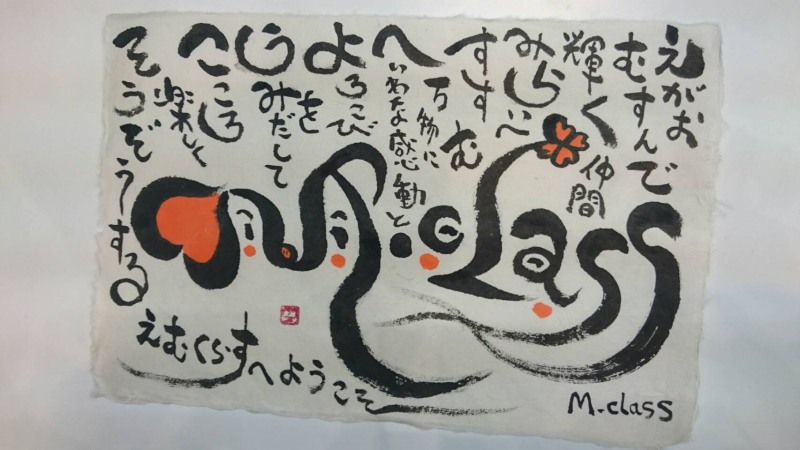 えがお
むすんで
輝く
仲間
みらいへ
すすむ
万物に
へいわな感動と
よろこびを
うみだして
こころ
楽しく
そうぞうする
m.class
えむくらすへようこそ
M-class